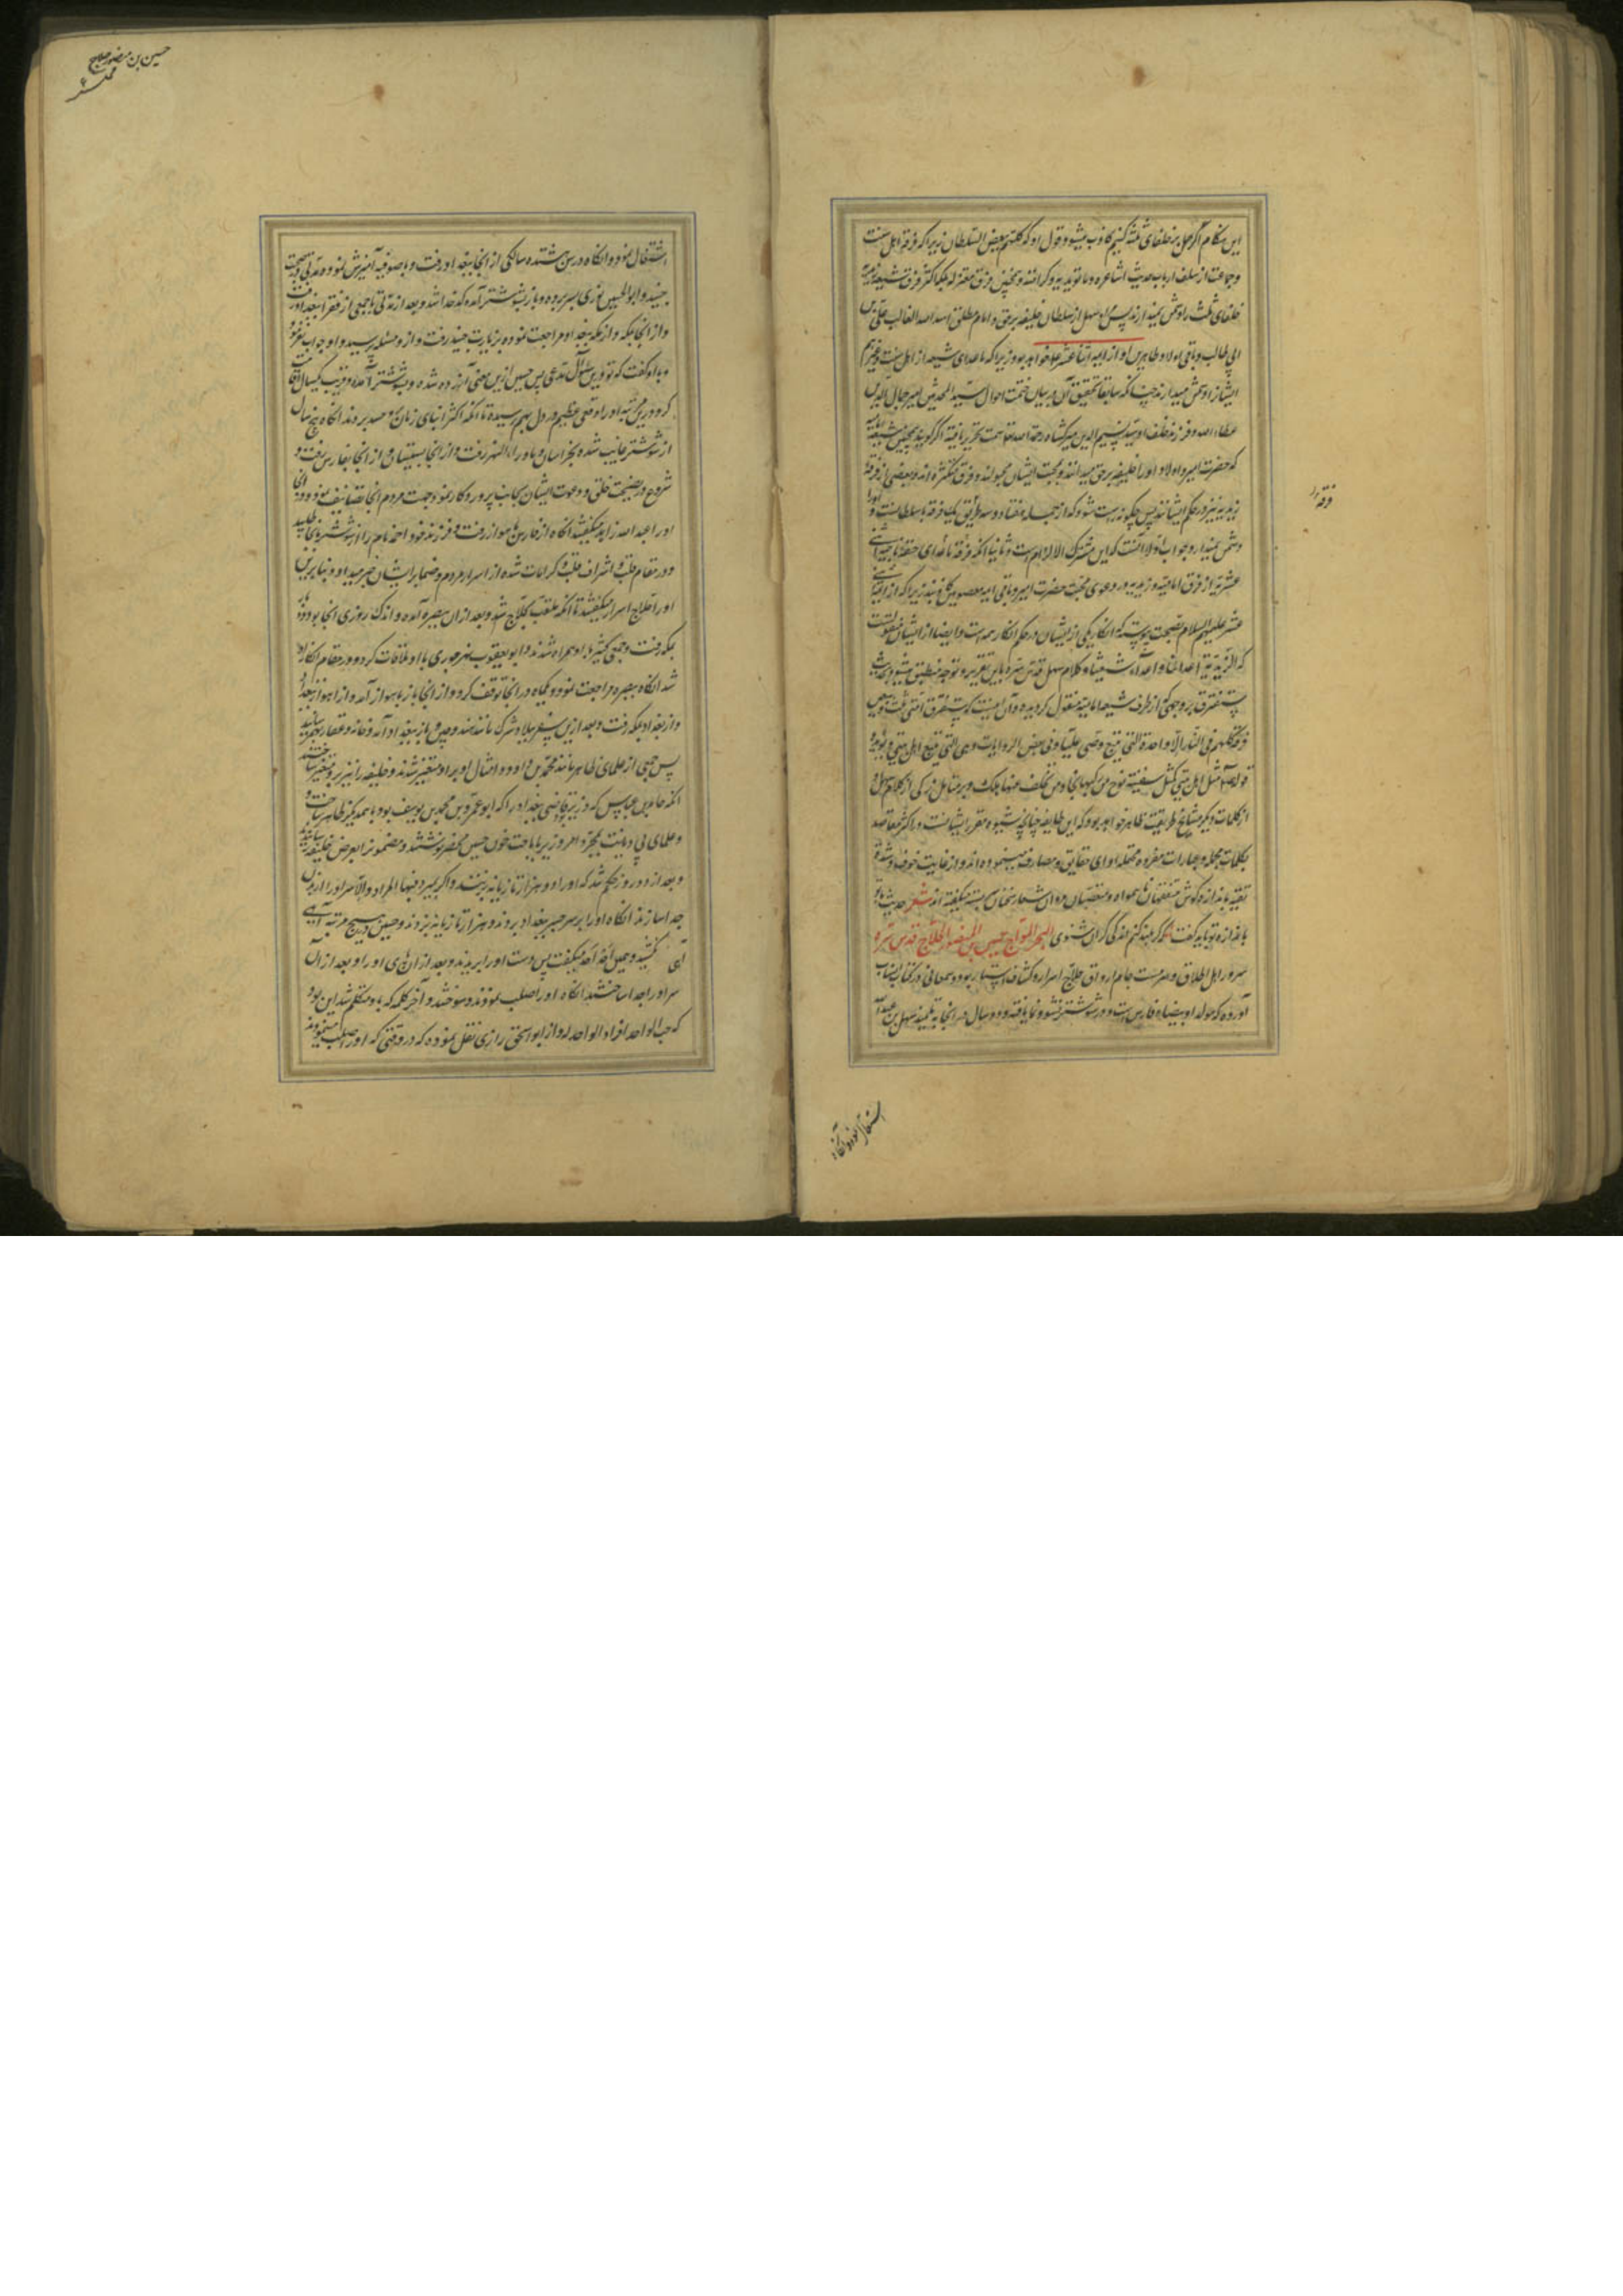 این کلام اگر حمل بر خلفای ثلثه کنیم کاذب میشود و قول او که کلهم یبغض السلطان زیرا که فرقه اهل سنت
و جماعت از سلف ارباب حدیث اشاعره و ماتریدیه و کرامیه و همچنین فرق معتزله بلکه اکثر فرق شیعه زیدیه
خلفای ثلث را دشمن نمیدارند پس مراد سهل از سلطان خلیفه برحق و امام مطلق اسد الله الغالب علی بن
ابی طالب و باقی اولاد طاهرین او از ایمه اثنا عشر خواهد بود زیرا که ماعدای شیعه از اهل سنت و غیرهم
ایشانرا دشمن میدارند چنانکه سابقا تحقیق آن در بیان خاتمت احوال سید المحدثین امیر جمال الدین
عطاء الله و فرزند خلف او سید نسیم الدین میرکشاه رحمة الله علیهما سمت تحریر یافته اگر گویند همچنین شیعه امامیه
که حضرت امیر و اولاد او را خلیفه برحق میدانند و محبت ایشان مجبولند و فرق متکثره اند و بعضی از فرقه
زیدیه نیز در حکم ایشانند پس چگونه راست شود که از جمله هفتاد و سه طریق یک فرقه با سلطانست و او را
دشمن نمیدارد جواب اولا آنست که این مشترک الالزام است و ثانیا آنکه فرقه ماعدای حقه ناجیه اثنی
عشریه از فرق امامیه و زیدیه در دعوی محبت حضرت امیر و باقی ایمه معصومین کاذبند زیرا که از ایمه اثنی
عشر علیهم السلام بصحت پیوسته که انکار یکی از ایشان در حکم انکار همه است و ایضا از ایشان منقولست
که الزیدیة اعداؤنا و اعداء شیعتنا و کلام سهل قدس سره باین تقریر و توجیه منطبق میشود بحدیث
ستفترق بر وجهی که از طرف شیعه امامیه منقول گردیده و آن اینست که ستفترق امتی ثلث و سبعین
فرقة کلهم فی النار الا واحدة التی تتبع وصیی علیا و فی بعض الروایات و هی التی تتبع اهل بیتی و یؤیده
قوله صلعم مثل اهل بیتی کمثل سفینة نوح من رکبها نجا و من تخلف عنها هلک و بر متامل زکی از کلام سهل و
از کلمات دیگر مشایخ طریقت ظاهر خواهد بود که این طایفه چنانچه شیوه مقرر ایشانست در اکثر مقاصد
بکلمات مجمله و عبارات مفروده محتمله ادای حقایق و معارف مینموده اند و از غایت خوف و شدة
تقیه باندازه گوش متفقهان ناهموار و متعصبان مروان شعار سخنان بسته میگفته اند شعر حدیث ما تو
باندازه تو باید گفت که گر بلند کنم اندکی گران شنوی البحر المواج حسین بن المنصور الحلاج قدس سره
سرور اهل اطلاق و سرمست جام اذواق حلاج اسرار و کشاف استار بود و سمعانی در کتاب انساب
آورده که مولد او بیضاء فارس است و در شوشتر نشو و نما یافته و دو سال در انجا به تلمیذ سهل بن عبد الله
فرقه
اشتغال نمود و انکاه
حسین بن منصور حلاج
اشتغال نمود و انکاه در سن هشتده سالگی از انجا ببغداد رفت و با صوفیه آمیزش نمود و مدتی در صحبت
جنید و ابو الحسین نوری بسر برده و باز بشوشتر آمده کدخدا شد و بعد از مدتی با جمعی از فقرا ببغداد رفت
و از انجا بمکه و از مکه ببغداد مراجعت نموده بزیارت جنید رفت و از و مسئله پرسید و او جواب نفرمود
و با او گفت که تو درین سؤال مدعی پس حسین ازین معنی آزرده شده و بشوشتر آمده و قریب یکسال اقامت
کرد و درین مرتبه او را وقعی عظیم در دل بهم رسیده تا آنکه اکثر ابنای زمان بر و حسد بردند انکاه پنج سال
از شوشتر غایب شده بخراسان و ماوراء النهر رفت و از انجا بسیستان و از انجا بفارس رفت و
شروع در نصیحت خلق و دعوت ایشان بجانب پروردگار نمود و جهت مردم انجا تصانیف نمود و در انجا
او را عبد الله زاهد میگفتند انکاه از فارس باهواز رفت و فرزند خود احمد نام را از شوشتر بانجا طلبید
و در مقام قلب و اشراف قلب و کرامات شده از اسرار مردم و ضمایر ایشان خبر میداد و بنابرین
او را حلاج اسرار میگفتند تا آنکه ملقب بحلاج شد و بعد از ان ببصره آمده و اندک روزی انجا بود و باز
بمکه رفت و جمعی کثیر با او همراه شدند و ابو یعقوب نهرجوری با او ملاقات کرد و در مقام انکار او
شد انکاه ببصره مراجعت نمود و یکماه در انجا توقف کرد و از انجا باز باهواز آمد و از اهواز ببغداد
و از بغداد بمکه رفت و بعد ازین سفر ببلاد شرک مانند هند و چین و باز ببغداد آمد و خانه و عقار بهم رسانید
پس جمعی از علمای ظاهر مانند محمد بن داود و امثال او برو متغیر شدند و خلیفه را نیز برو متغیر ساختند
آنکه حامد بن عباس که وزیر بود قاضی بغداد را که ابو عمرو بن محمد بن یوسف بود با همدیگر ظاهر ساخت و
و علمای بی دیانت بمجرد امر وزیر باباحت خون حسین محضر نوشتند و مضمون را بعرض خلیفه رسانیدند
و بعد از دو روز حکم شد که او را دو هزار تازیانه بزنند و اگر بمیرد فبها المراد و الا سر او را از بدن
جدا سازند انکاه او را بر سر جسر بغداد بردند و هزار تازیانه بزدند و حسین در هیچ مرتبه آهی
آهی نکشید و همین احد احد میگفت پس دست او را بریدند و بعد از ان پای او را و بعد از ان
سر او را جدا ساختند انکاه او را صلب نمودند و سوختند و آخر کلمه که باو متکلم شد این بود
که حسب الواحد افراد الواحد له و از ابو اسحق رازی نقل نموده که در وقتی که او را صلب مینمودند